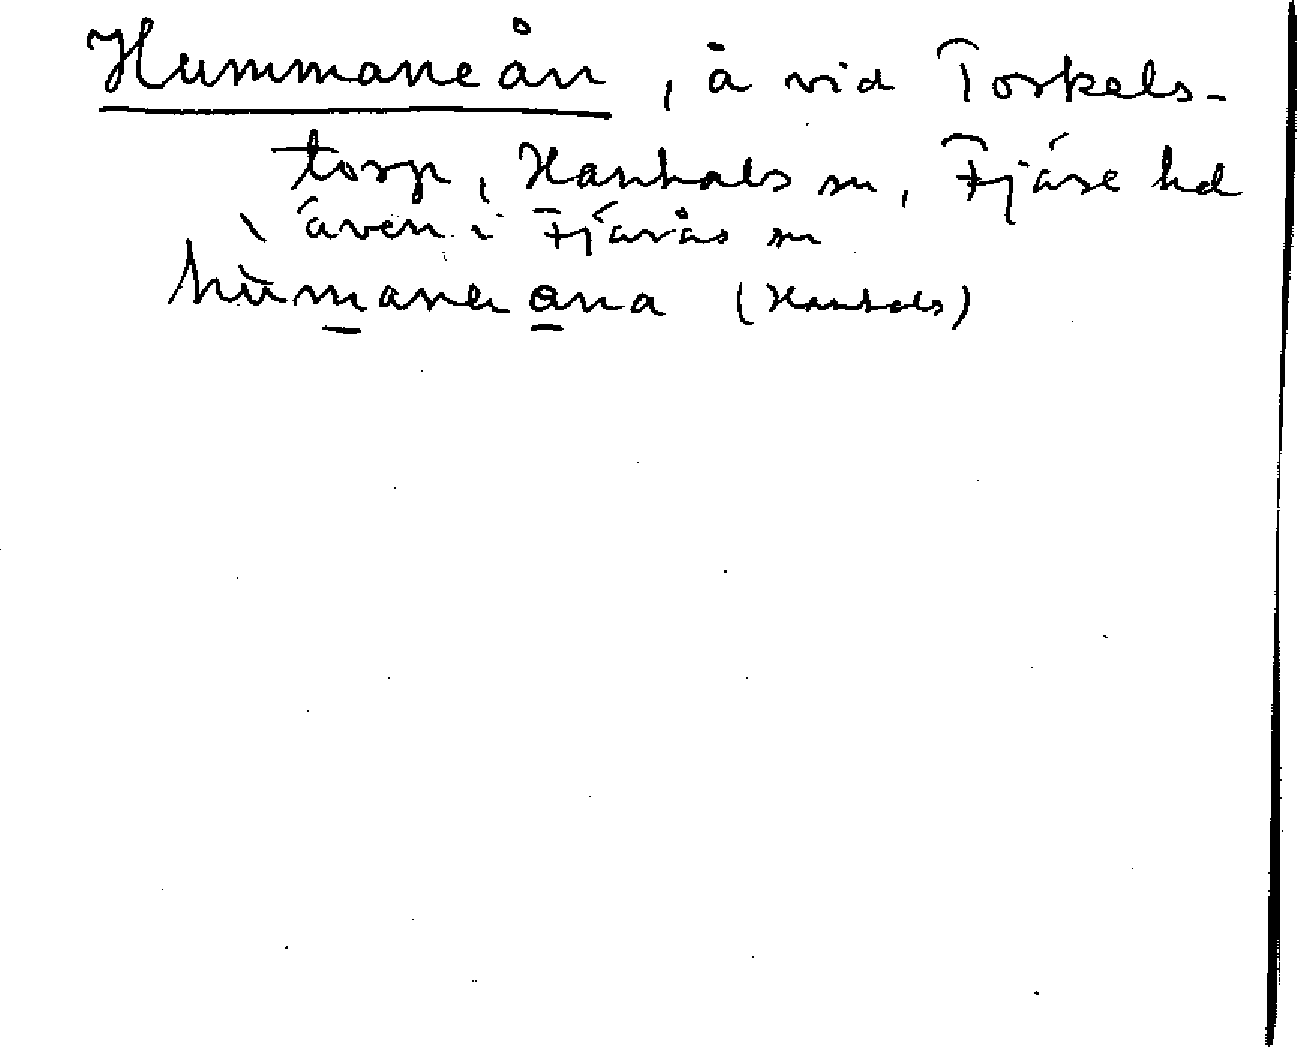 Hummaneån, å vid Torkels-
torp, Hanhals sn, Fjäre hd
även i Fjärås sn
hùmanəɑna (Hanhals)